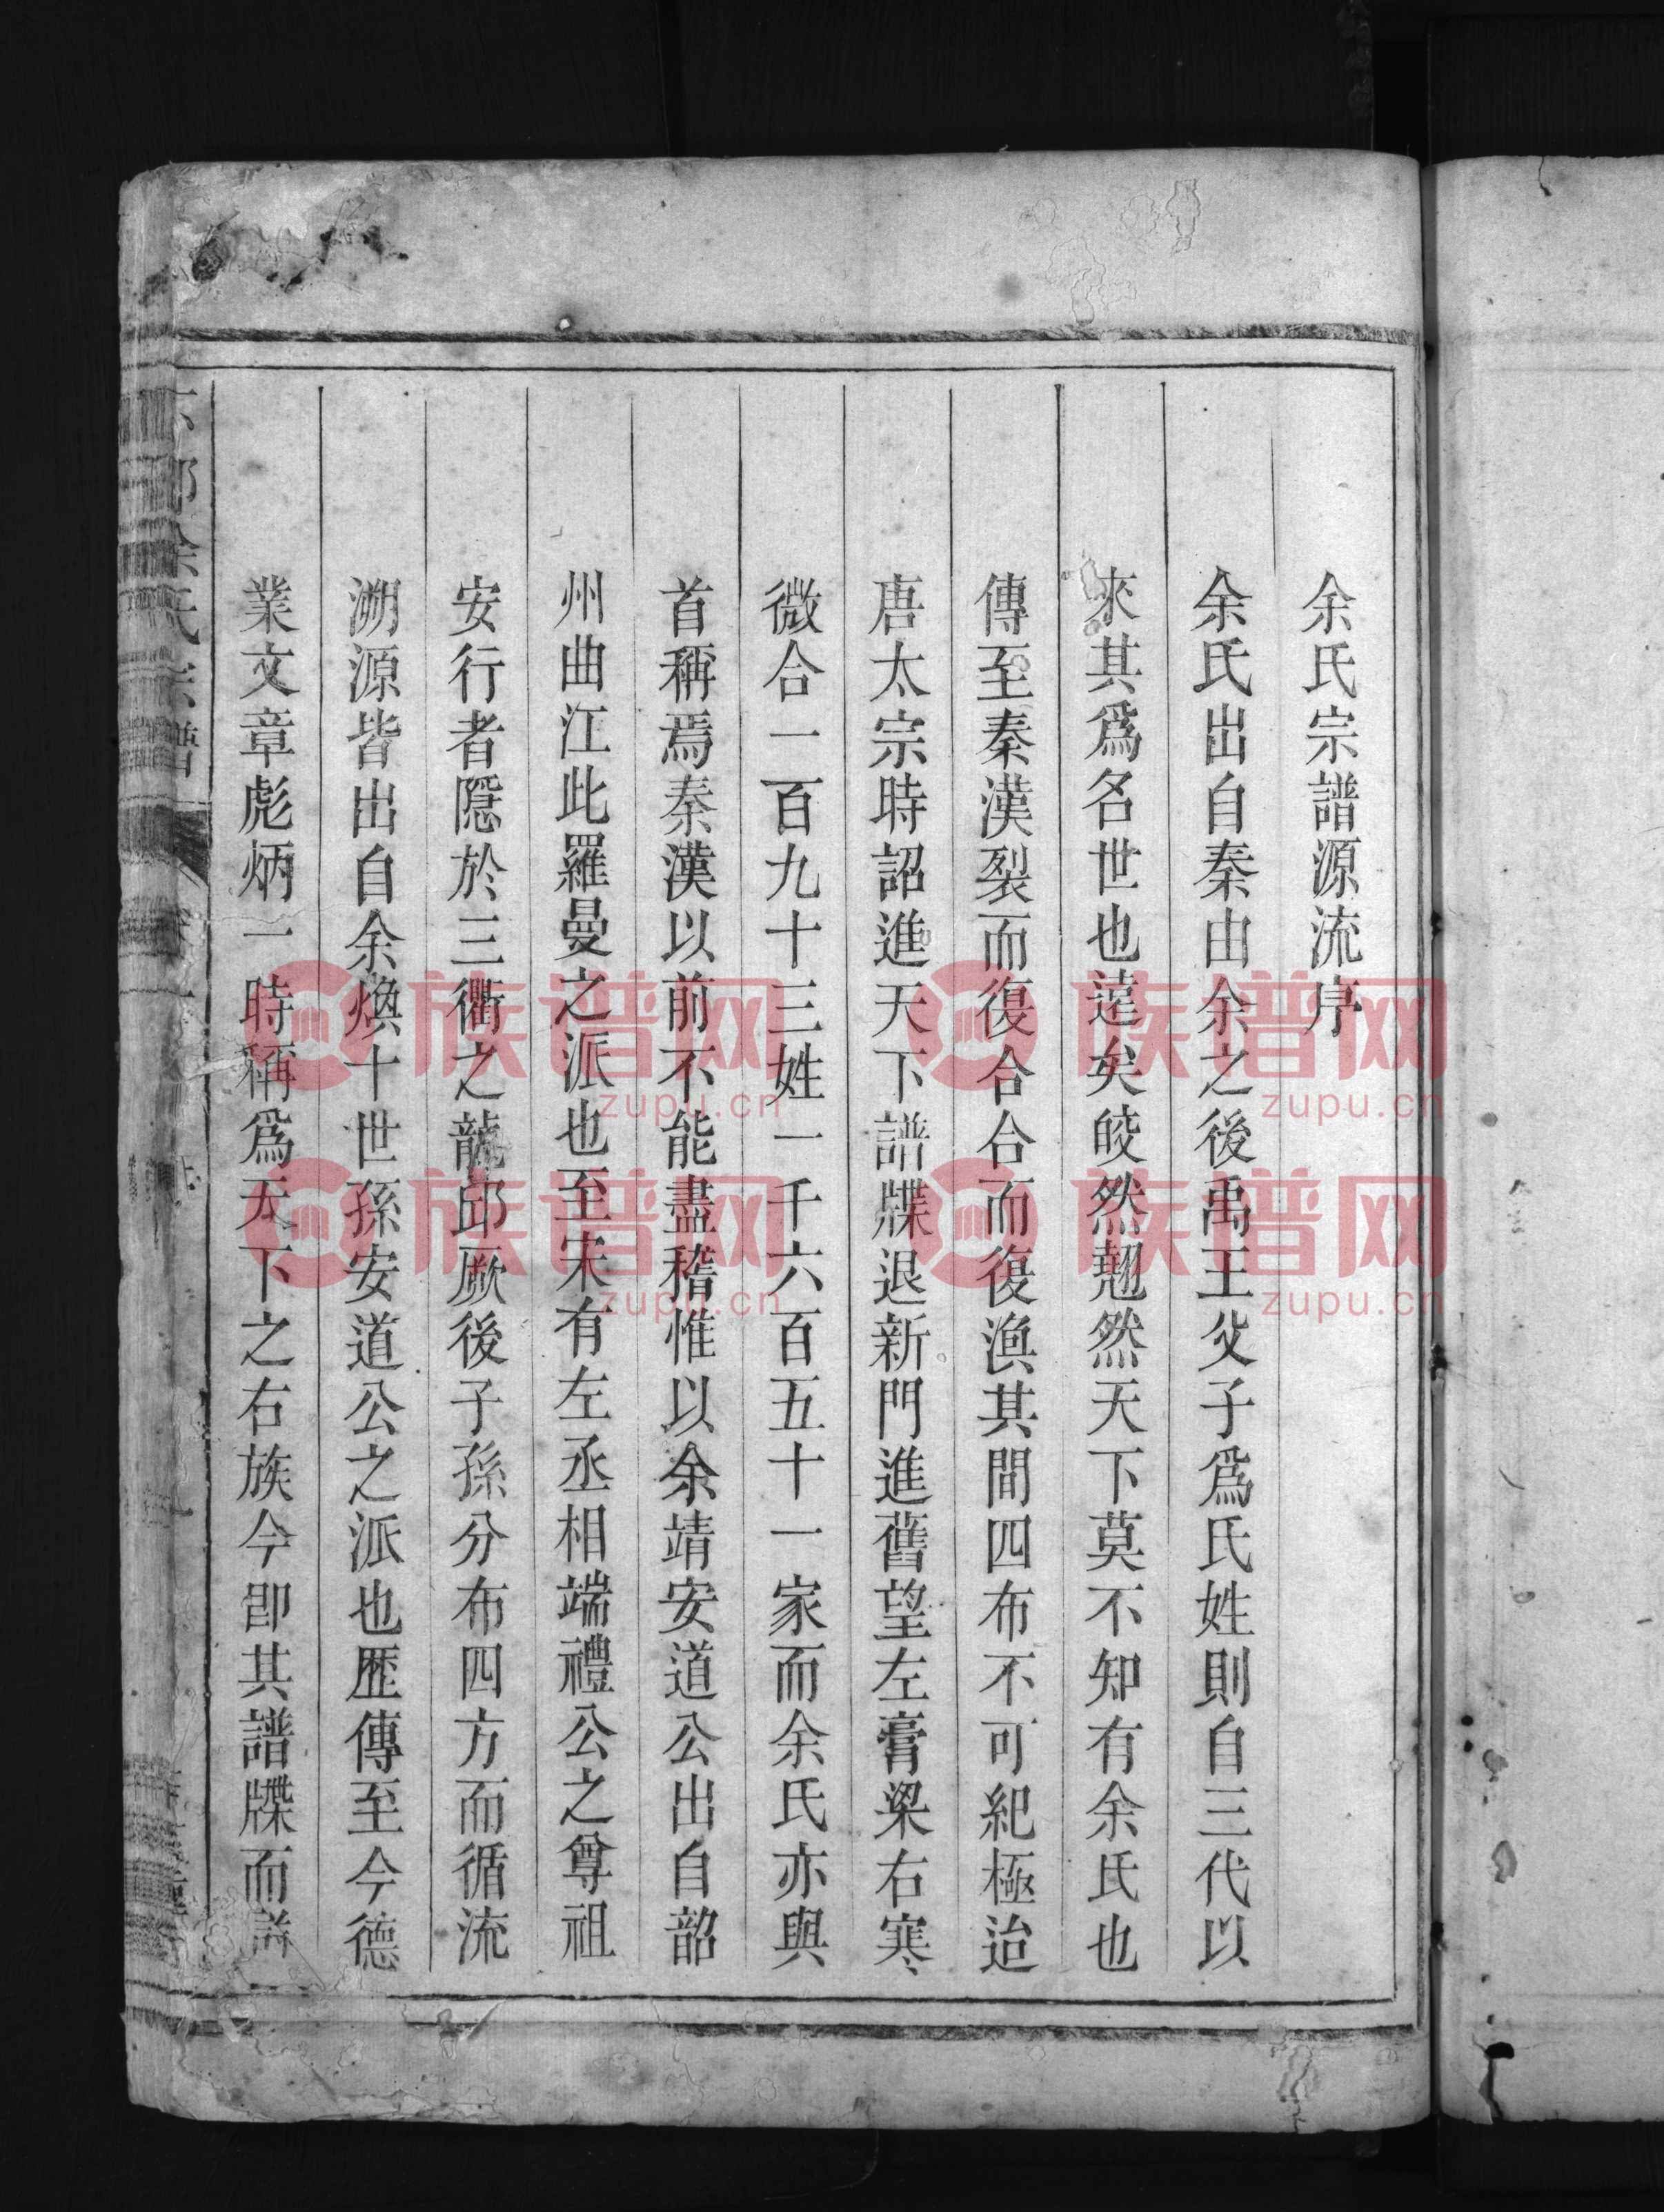 余氏宗譜源流序
余氏出自秦由余之後禹王父子爲氏姓則自三代以
來其爲名世也遠矣皎然翹然天下莫不知有余氏也
傳至秦漢裂而復合合而復渙其間四布不可紀極迨
唐太宗時詔進天下譜牒退新門進舊望左膏梁右寒
微合一百九十三姓一千六百五十一家而余氏亦與
首稱焉秦漢以前不能盡稽惟以余靖安道公出自韶
州曲江此羅曼之派也至宋有左丞相端禮公之尊祖
安行者隱於三衢之龍邱厥後子孫分布四方而循流
溯源皆出自余煥十世孫安道公之派也歷傳至今德
業文章彪炳一時稱爲天下之右族今卽其譜牒而
余氏宗譜
族谱网
zupu.cn
族谱网
zupu.cn
族谱网
zupu.cn
族谱网
zupu.cn